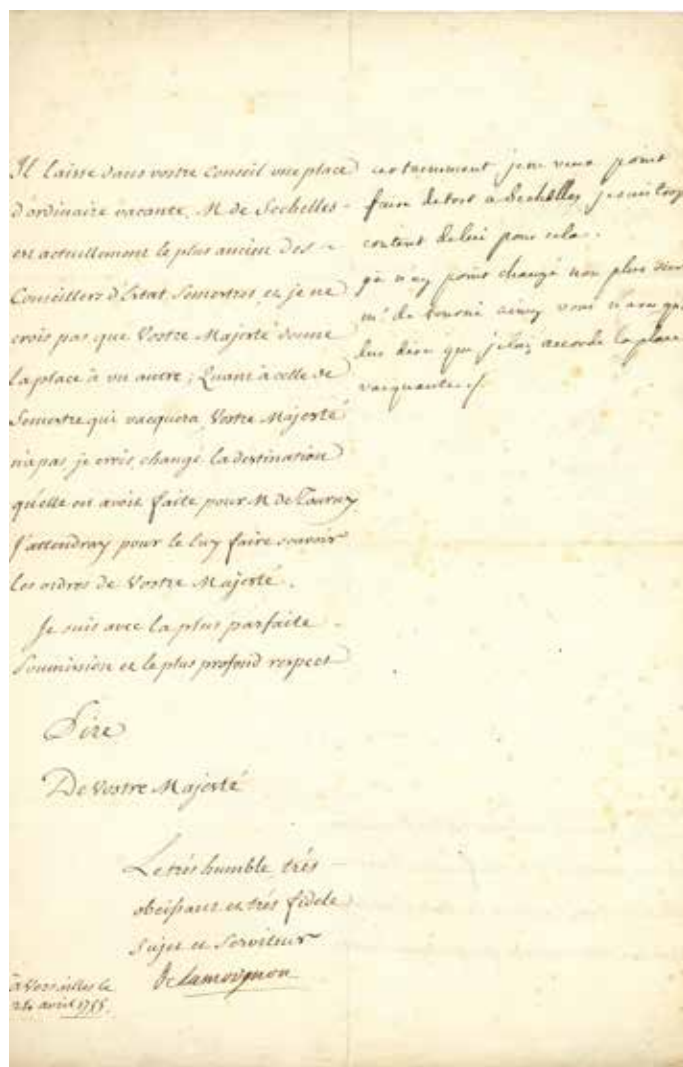 Il laisse dans vostre Conseil une place
d'ordinaire vacante, M de Sechelles
est actuellement le plus ancien des
Conseillers d'Estat Semestres, et je ne
crois pas que Vostre Majesté donne
la place à un autre; Quant à celle de
Semestre qui vacquera, Vostre Majesté
n'a pas, je crois, changé la destination
qu'elle en avoit faite pour M de Tourny
J'attendray pour le luy faire sçavoir
les ordres de Vostre Majesté.
Je suis avec la plus parfaite
soumission et le plus profond respect
Sire
De Vostre Majesté
Le très humble, très
obeissant et très fidele
sujet et serviteur
De Lamoignon
à Versailles le
24 avril 1755.
certainement je ne veux point
faire de tort a Sechelles, je suis trop
content de lui pour cela.
je n'ay point changé non plus
mr. de tourni ainsy vous n'avez qu
dire que j accorde la place
vacquante